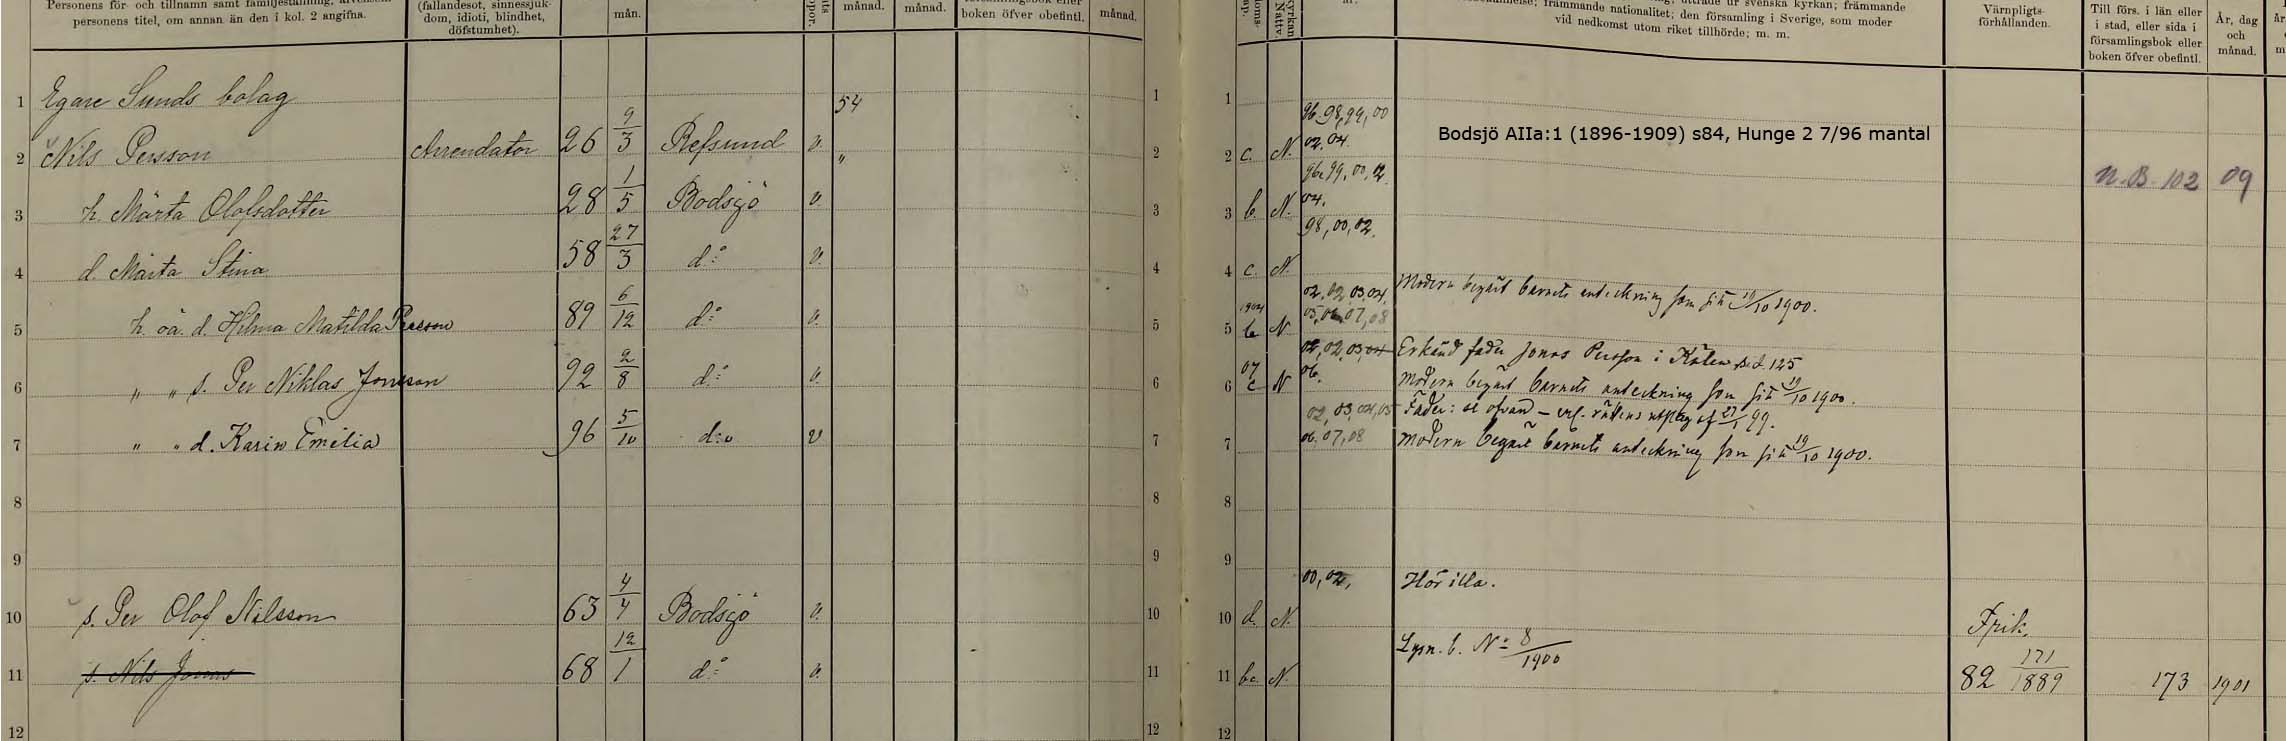 Personens för- och tillnamn samt familjeställning,
personens titel, om annan än den i kol. 2 angifna.
(fallandesot, sinnessjuk-
dom, idioti, blindhet,
döfstumhet).
mån.
månad.
månad.
boken öfver obefintl.
månad.
främmande nationalitet; den församling i Sverige, som moder
vid nedkomst utom riket tillhörde; m. m.
Värnpligts-
förhållanden.
Till förs. i län eller
i stad, eller sida i
församlingsbok eller
boken öfver obefintl.
År, dag
och
månad.
Bodsjö AIIa:1 (1896-1909) s84, Hunge 2 7/96 mantal
1 Egare Sunds bolag 54 1 1
2 Nils Persson Arrendator 26 9/3 Refsund v. " 2 2 c. N. 96, 98, 99, 00 02, 04. N.B. 102 09
3 h. Märta Olofsdotter 28 1/5 Bodsjö v. 3 3 b. N. 96, 99, 00, 02 04.
4 d. Märta Stina 58 27/3 d:o v. 4 4 c. N. 98, 00, 02.
5 h. oä. d. Hilma Matilda Persson 89 6/12 d:o v. 5 5 N 02, 02, 03, 04, 05, 06, 07, 08 Modern begärt barnets anteckning som sitt 19/10 1900.
6 " " s. Per Niklas Jonsson 92 2/8 d:o v. 6 6 07 c N 02, 02, 03, 04 06. Erkänd fader Jonas Persson i Kälen sid. 125
Modern begärt barnets anteckning som sitt 19/10 1900.
7 " " d. Karin Emilia 96 5/10 d:o v 7 7 02, 03, 04, 05 06, 07, 08 Fader: se ofvan – enl. rättens utslag af 27/1 99.
Modern begärt barnets anteckning som sitt 19/10 1900.
8 8 8
9 9 9
10 s. Per Olof Nilsson 63 4/4 Bodsjö v. 10 10 d. N. 00, 02, Hör illa. Frik.
11 s. Nils Jonas 68 12/1 d:o v. 11 11 bc N. Lysn. b. No 8/1900 82 171/1889 173 1901
12 12 12